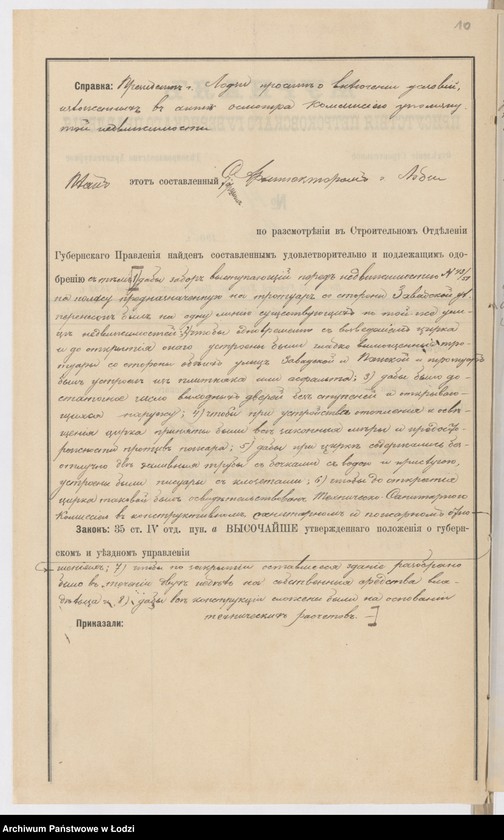 10
Справка: Президентъ г. Лодзи проситъ о включеніи условій,
изложенныхъ въ актѣ осмотра Коммисіею упомяну-
той недвижимости
Планъ этотъ составленный Архитекторомъ г. Лодзи
по разсмотрѣніи въ Строительномъ Отдѣленіи
Губернскаго Правленія найденъ составленнымъ удовлетворительно и подлежащимъ одо-
бренію съ тѣмъ 1) дабы заборъ выступающій передъ недвижимостью №
на полосу предназначенную на тротуаръ со стороны Завадской ул.
перенесенъ былъ на одну линію существующихъ на той же ули-
цѣ недвижимостей 2) чтобы одновременно съ возведеніемъ цирка
и до открытія онаго устроены были гладко вымощенные тро-
туары со стороны обѣихъ улицъ Завадской и и тротуаръ
былъ устроенъ изъ плитняка или асфальта; 3) дабы было до-
статочное число выходныхъ дверей безъ ступеней и открываю-
щихся наружу; 4) чтобы при устройствѣ отопленія и освѣ-
щенія цирка приняты были всѣ законныя мѣры и предосто-
рожности противъ пожара; 5) дабы при циркѣ содержались без-
отлучно двѣ заливныя трубы съ бочками съ водою и прислугою,
устроены были писуары съ клозетами; 6) чтобы до открытія
цирка таковой былъ освидѣтельствованъ Технически-Санитарною
Комиссіею въ конструктивномъ, санитарномъ и пожарномъ отно-
Законъ: 35 ст. IV отд. пун. а ВЫСОЧАЙШЕ утвержденнаго положенія о губерн-
скомъ и уѣздномъ управленіи
шеніяхъ; 7) чтобы по закрытіи оставшееся зданіе разобрано
было въ теченіи двухъ недѣль на собственныя средства вла-
дѣльца и 8) дабы всѣ конструкціи сложены были на основаніи
техническихъ расчетовъ.
Приказали:
Archiwum Państwowe w Łodzi